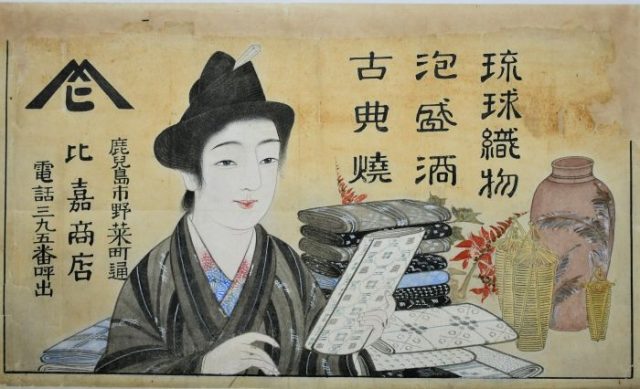 琉球織物
泡盛酒
古典燒
鹿兒島市野菜町通
比嘉商店
電話三九五番呼出